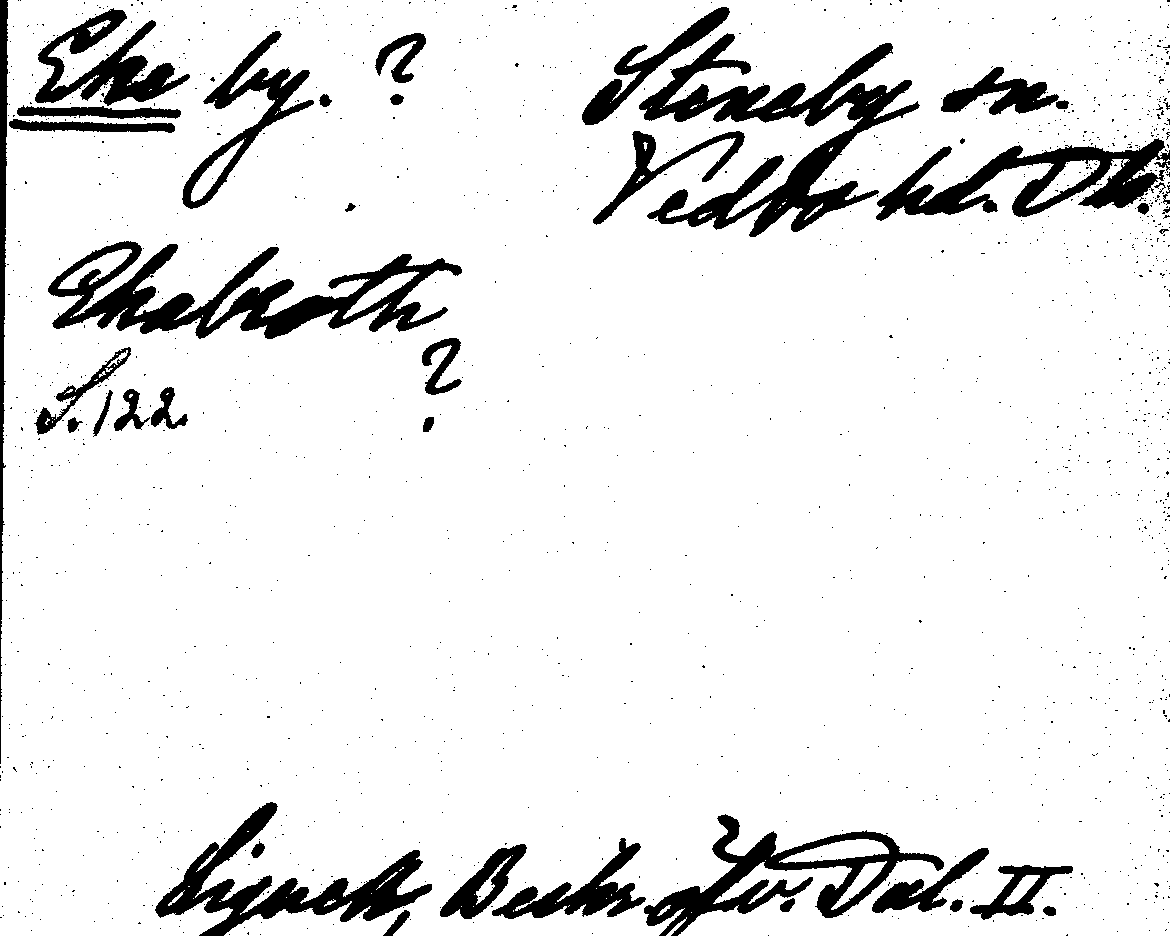 Eke by. ?
Steneby sn.
Vedbo hd. Dls.
Ekabroth
?
S. 122.
Lignell, Beskr. öfv. Dal. II.